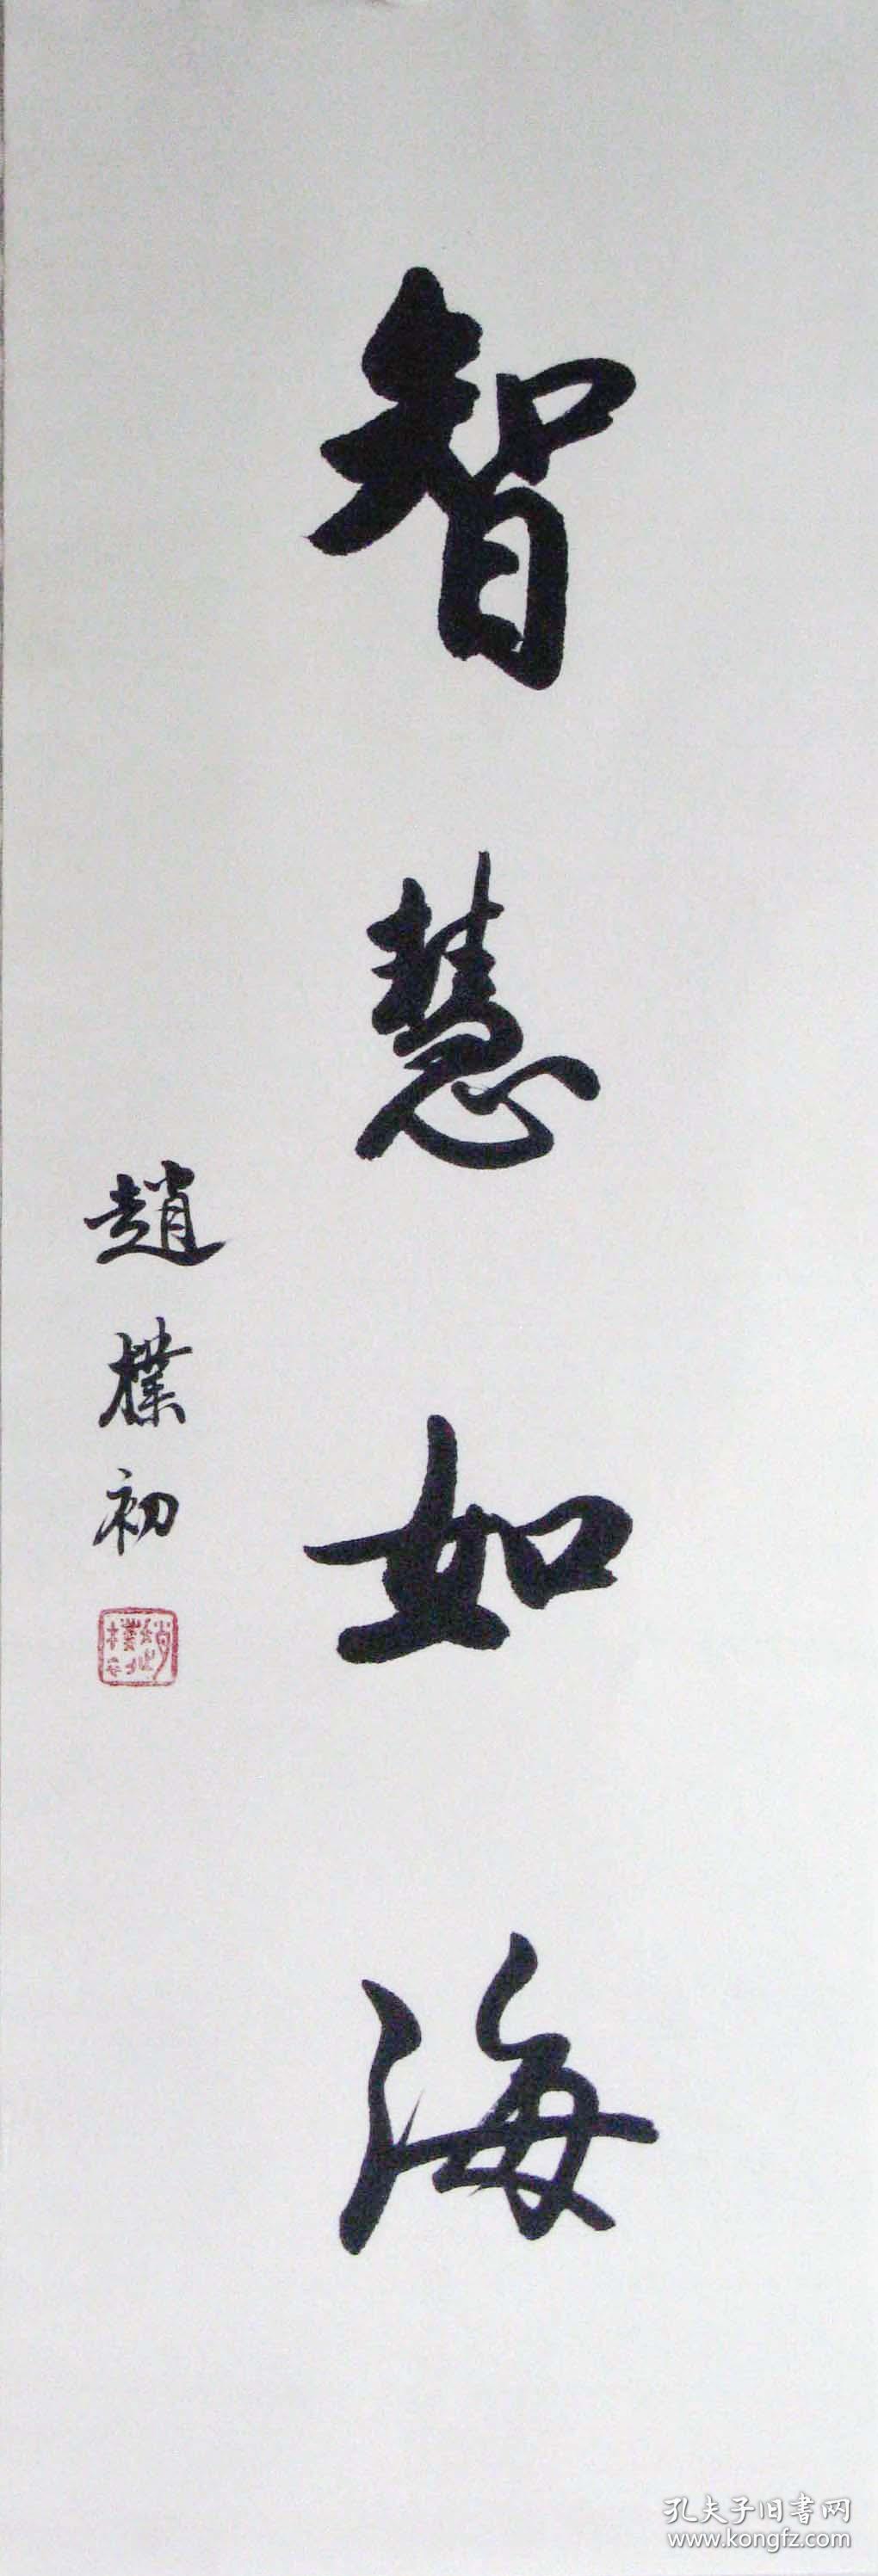 智慧如海
趙樸初
孔夫子旧书网
www.kongfz.com